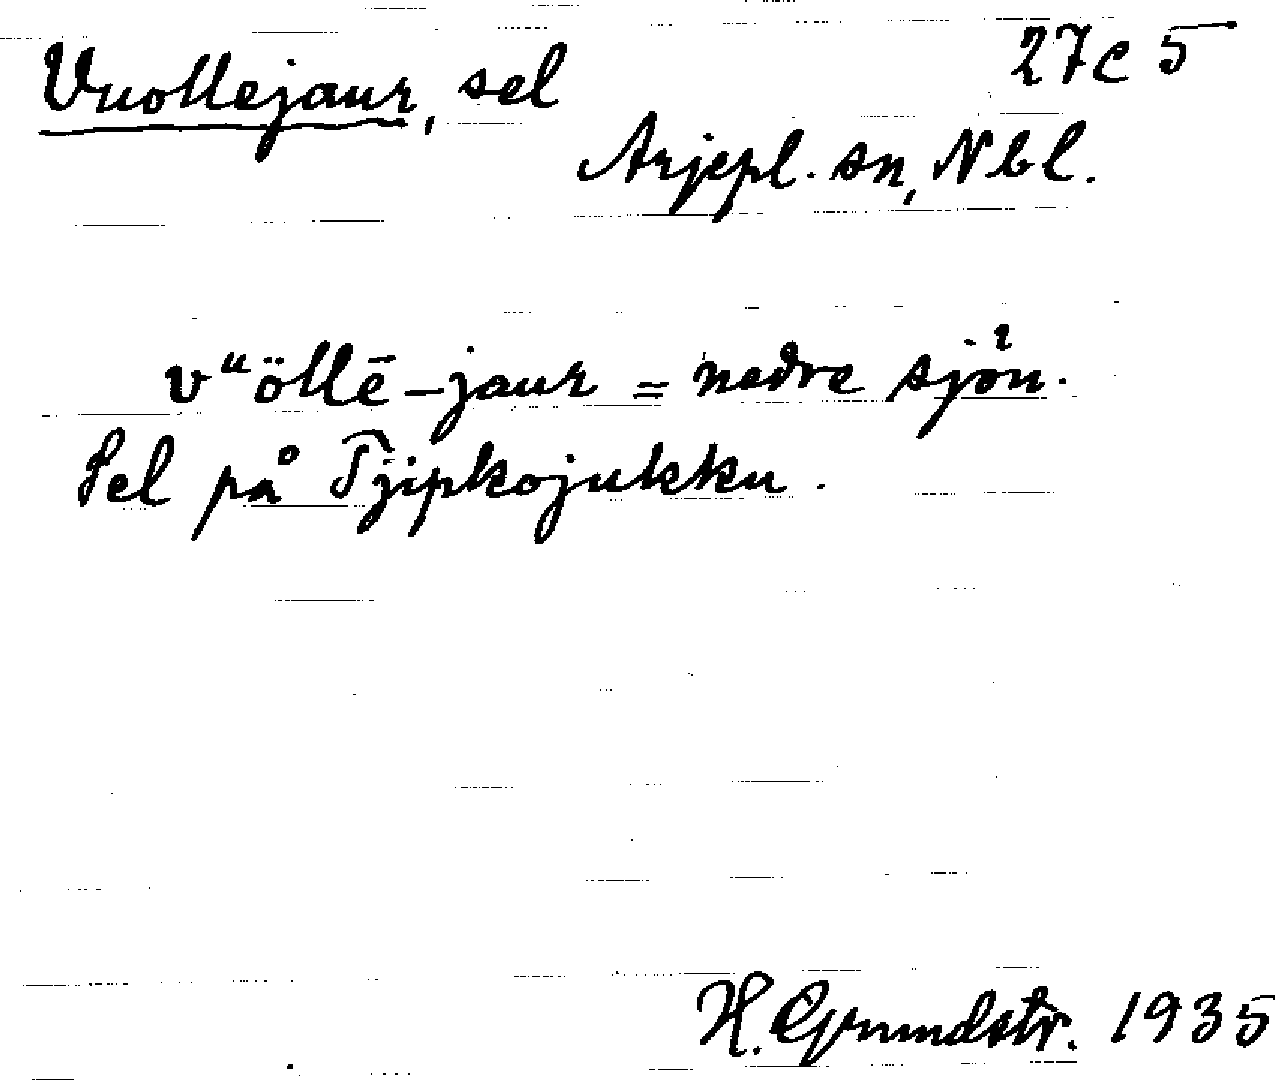 Vuollejaur, sel 27c5
Arjepl. sn, Nbl.
vᵘöllē-jaur = nedre sjön.
Sel på Tjipkojukku.
H. Grundstr. 1935